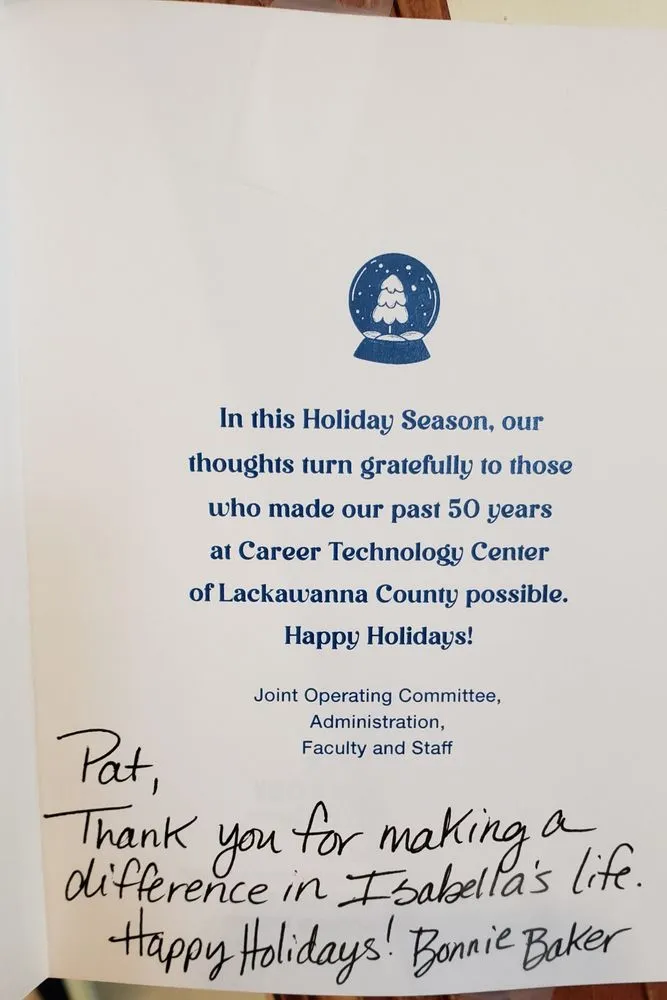 In this Holiday Season, our
thoughts turn gratefully to those
who made our past 50 years
at Career Technology Center
of Lackawanna County possible.
Happy Holidays!
Joint Operating Committee,
Administration,
Faculty and Staff
Pat,
Thank you for making a
difference in Isabella's life.
Happy Holidays! Bonnie Baker